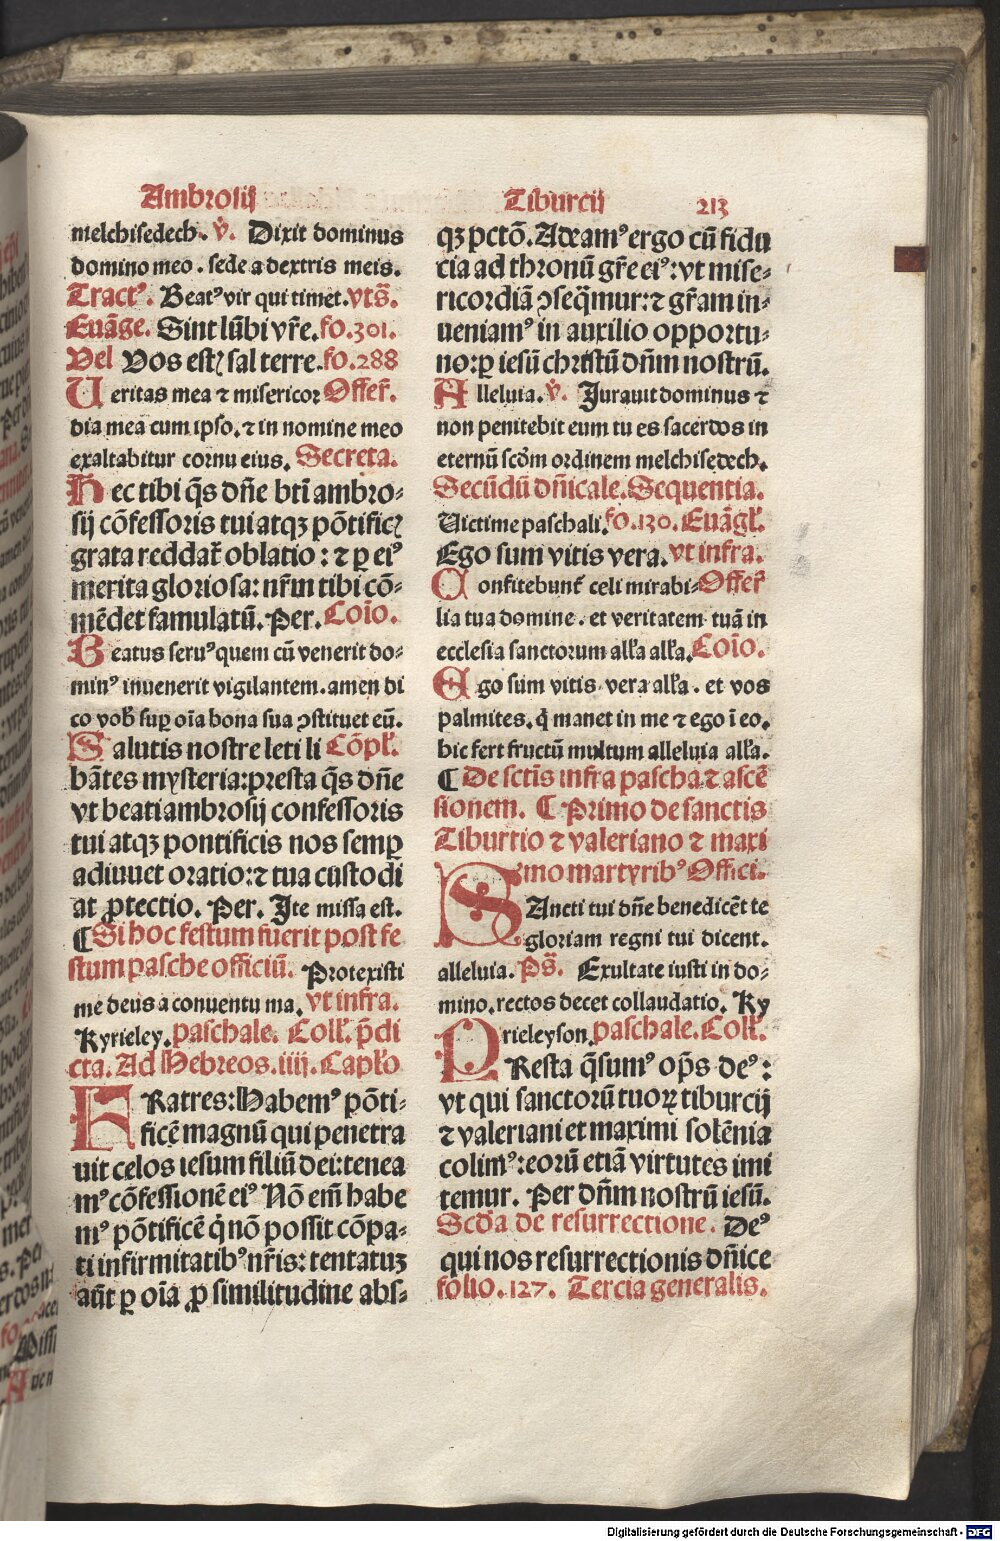 Ambrosij
Tiburcij
213
melchisedech. v̾. Dixit dominus
domino meo. sede a dextris meis.
Tractꝰ. Beatꝰ vir qui timet. vts̄.
Euāge. Sint lūbi vr̄e. fo. 301.
Vel Vos estꝭ sal terre. fo. 288
Ueritas mea ⁊ misericor Offer̄.
dia mea cum ipso. ⁊ in nomine meo
exaltabitur cornu eius. Secreta.
Hec tibi q̄s dn̄e bt̄i ambro-
sij cōfessoris tui atqꝫ pōtificꝭ
grata reddat̄ oblatio: ⁊ ꝑ eiꝰ
merita gloriosa: nr̄m tibi cō-
mēdet famulatū. Per. Coīo.
Beatus seruꝰ quem cū venerit do-
minꝰ inuenerit vigilantem. amen di
co vob̄ suꝑ oīa bona sua ꝯstituet eū.
Salutis nostre leti li Cōpl̄.
bātes mysteria: presta q̄s dn̄e
vt beati ambrosij confessoris
tui atqꝫ pontificis nos semꝑ
adiuuet oratio: ⁊ tua custodi
at ꝓtectio. Per. Ite missa est.
¶ Si hoc festum fuerit post fe
stum pasche officiū. Protexisti
me deus a conuentu ma. vt infra.
Kyrieley. paschale. Coll̄. p̄di
cta. Ad Hebreos. iiij. Capl̄o
FRatres: Habemꝰ pōti-
ficē magnū qui penetra
uit celos iesum filiū dei: tenea
mꝰ cōfessionē eiꝰ Nō em̄ habe
mꝰ pōtificē q̇ nō possit cōpa-
ti infirmitatibꝰ nr̄is: tentatuꝫ
aūt ꝑ oīa ꝓ similitudine abs-
qꝫ pctō. Adeamꝰ ergo cū fidu
cia ad thronū gr̄e eiꝰ: vt mise-
ricordiā ꝯseq̄mur: ⁊ gr̄am in-
ueniamꝰ in auxilio opportu-
no: ꝑ iesū christū dn̄m nostrū.
Alleluia. v̾. Jurauit dominus ⁊
non penitebit eum tu es sacerdos in
eternū scd̄m ordinem melchisedech.
Secūdū dn̄icale. Sequentia.
Uictime paschali. fo. 130. Euāgl̄.
Ego sum vitis vera. vt infra.
Confitebunt̄ celi mirabi- Offer̄
lia tua domine. et veritatem tuā in
ecclesia sanctorum all̄a all̄a. Coīo.
Ego sum vitis vera all̄a. et vos
palmites. q̇ manet in me ⁊ ego ī eo.
hic fert fructū multum alleluia all̄a.
¶ De sctīs infra pascha ⁊ ascē
sionem. ¶ Primo de sanctis
Tiburtio ⁊ valeriano ⁊ maxi
mo martyribꝰ Offici.
SAncti tui dn̄e benedicēt te
gloriam regni tui dicent.
alleluia. Ps̄. Exultate iusti in do-
mino. rectos decet collaudatio. Ky
rieleyson. paschale. Coll̄.
PResta q̄sumꝰ op̄s deꝰ:
vt qui sanctorū tuoꝝ tiburcij
⁊ valeriani et maximi solēnia
colimꝰ: eorū etiā virtutes imi
temur. Per dn̄m nostrū iesū.
Scd̄a de resurrectione. Deꝰ
qui nos resurrectionis dn̄ice
folio. 127. Tercia generalis.
Digitalisierung gefördert durch die Deutsche Forschungsgemeinschaft - DFG